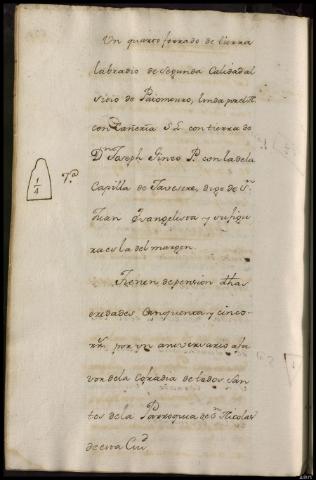 Un quarto forrado de tierra
labradio de segunda Calidad al
sitio de Paiomouro, linda por el N.
con S. con tierra de
Dn. Joseph Pineo P. con la de la
Capilla de digo de Sn.
7ª
1/4
Juan Evangelista y su figu
ra es la del margen.
Tienen de pension dhas
eredades Cinquenta y cinco
rs. por un aniversario a fa
vor de la Cofradia de todos San
tos de la Parroquia de Sn. Nicolas
de esta Ciud.